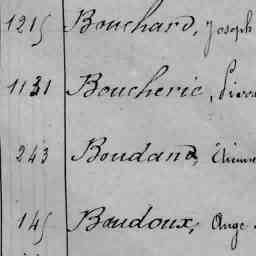 1215 Bouchard, Joseph
1131 Boucherie,
243 Boudand, Etienne
145 Boudoux, Ange